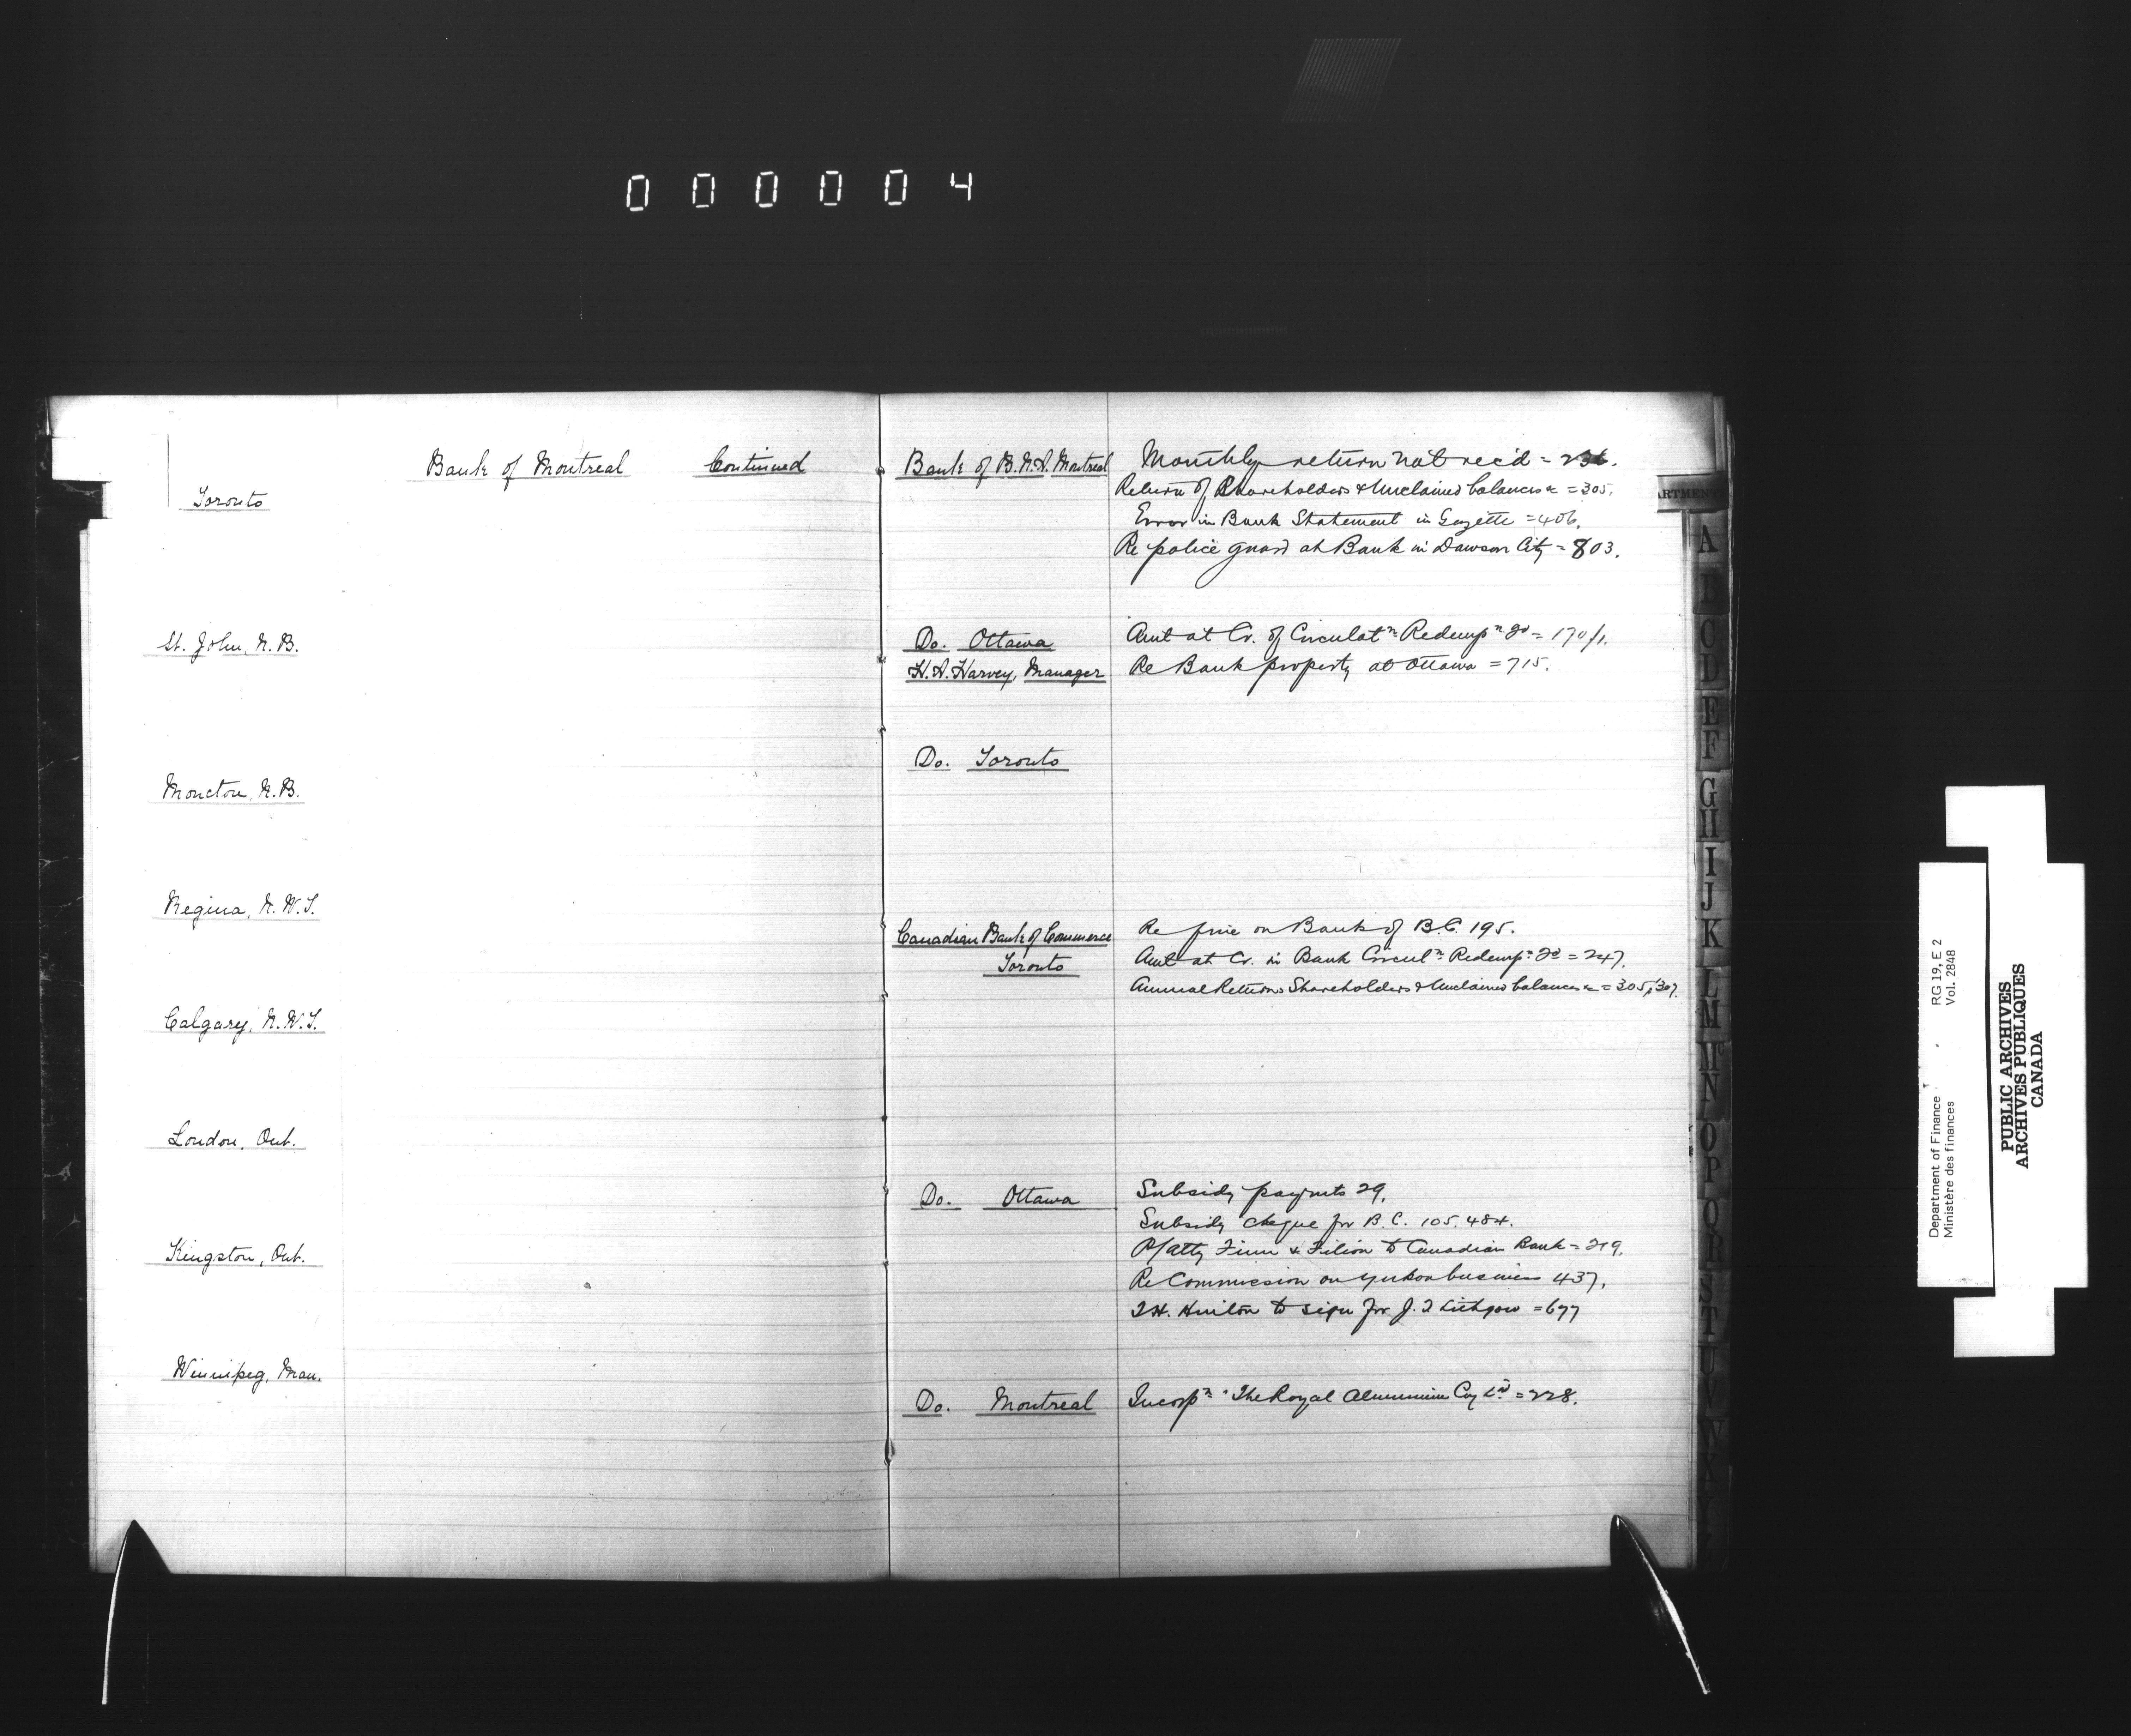 000004
Bank of Montreal Continued
Toronto
St. John, N.B.
Moncton, N.B.
Regina, N.W.T.
Calgary, N.W.T.
London, Ont.
Kingston, Ont.
Winnipeg, Man.
Bank of B.N.A. Montreal
Monthly return not rec'd = 236.
Return of Shareholders & Unclaimed balances = 305.
Error in Bank Statement in Gazette = 406.
Re police guard at Bank in Dawson City = 803.
Do. Ottawa
Amt at Cr. of Circulatn Redempn Fd = 170/1.
H.A. Harvey, Manager
Re Bank property at Ottawa = 715.
Do. Toronto
Canadian Bank of Commerce
Toronto
Re fine on Bank of B.C. 195.
Amt at Cr. in Bank Circuln Redempn Fd = 247.
Annual Returns Shareholders & Unclaimed balances = 305, 307.
Do. Ottawa
Subsidy paymts 29.
Subsidy cheque for B.C. 105. 484.
P/atty Finn & Filion to Canadian Bank = 219.
Re Commission on Yukon business 437.
to sign for J.T. Lithgow = 677
Do. Montreal
Incorpn "The Royal Aluminium Coy Ld = 228.
ARTMENT
A
B
C
D
E
F
G
H
I
J
K
L
M
Mc
N
O
P
Q
R
S
T
U
V
W
Department of Finance
Ministère des finances
RG 19, E 2
Vol. 2848
PUBLIC ARCHIVES
ARCHIVES PUBLIQUES
CANADA